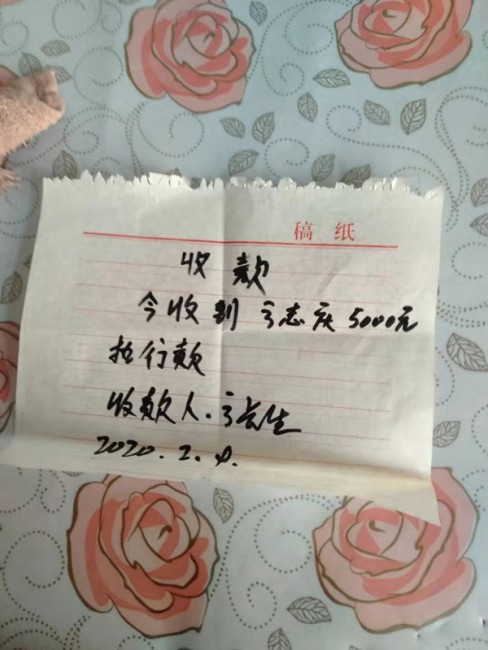 稿纸
收款
今收到 志庆 5000元
行款
收款人. 长生
2020.2.